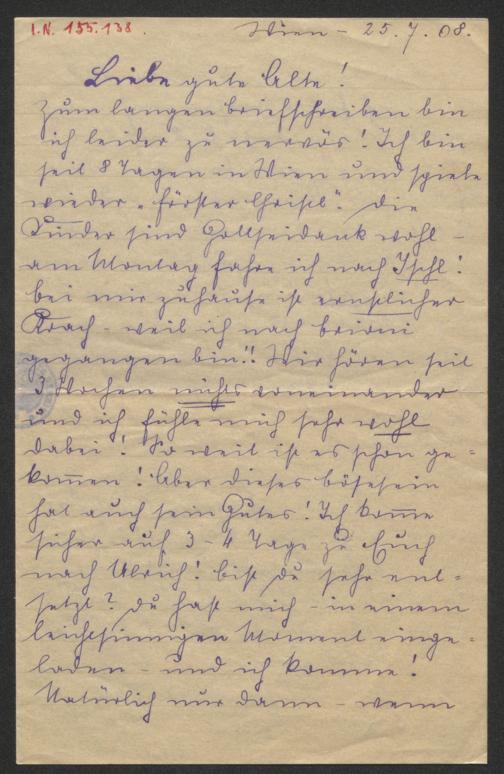 I.N. 155.138.
Wien - 25.7.08.
Liebe gute Alte!
Zum langen briefschreiben bin
ich leider zu nervös! Ich bin
seit 8 Tagen in Wien und spiele
wieder „Förster Christl". Die
Kinder sind Gottseidank wohl -
am Montag fahre ich nach Ischl!
bei mir zuhause ist ernstlicher
Krach - weil ich nach brioni
gegangen bin!! Wir hören seit
3 Wochen nichts voneinander
und ich fühle mich sehr wohl
dabei! So weit ist es schon ge=
kom̅en! Aber dieses bösesein
hat auch sein Gutes! Ich kom̅e
sicher auf 3-4 Tage zu Euch
nach Ulrich! bist du sehr ent=
setzt? du hast mich - in einem
leichtsinnigen Moment einge=
laden - und ich komme!
Natürlich nur dann - wenn